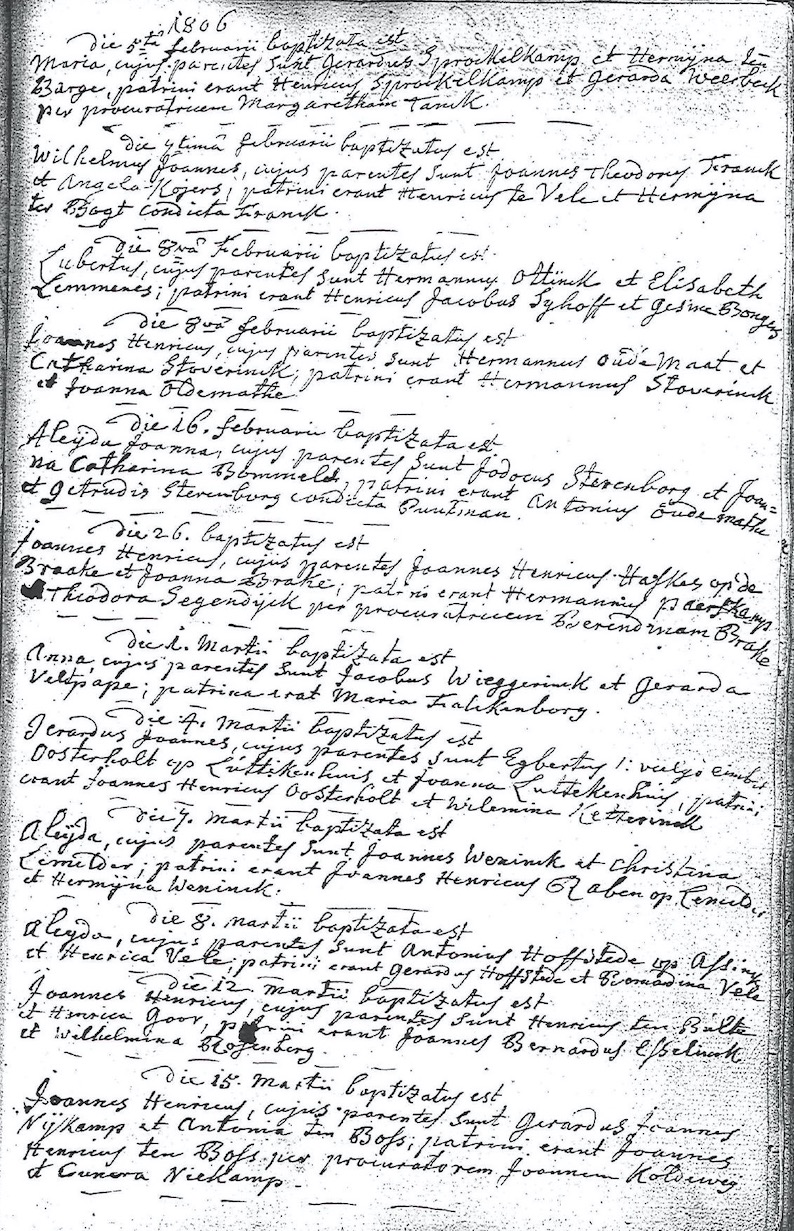 1806
die 5ta februarii baptizata est
Maria, cujus parentes sunt Gerardus Sprockilkamp et Hermijna ten
Barge, patrini erant Henricus Sprockilkamp et Gerarda Weerbeck
per procuratricem Margaretham Tanck
die februarii baptizatus est
Wilhelmus Joannes, cujus parentes sunt Joannes Theodorus Franck
et Angela Kojers; patrini erant Henricus te Vele et Hermijna
ter Bogt condicta Franck.
die 8va Februarii baptizatus est
Lubertus, cujus parentes sunt Hermannus Ottinck et Elisabeth
Lemmenes; patrini erant Henricus Jacobus Syhoff et Gesina Bonges
die 8va februarii baptizatus est
Joannes Henricus, cujus parentes sunt Hermannus oude Maat et
Catharina Stoverinck; patrini erant Hermannus Stoverinck
et Joanna Oldemathe
die 16. februarii baptizata est
Aleijda Joanna, cujus parentes sunt Jodocus Sterenborg et Joan=
na Catharina Bommels, patrini erant Antonius Oude mathe
et Getrudis Sterenborg condicta Puntman.
die 26. baptizatus est
Joannes Henricus, cujus parentes Joannes Henricus Hafkas op de
Braake et Joanna Brake; patrini erant Hermannus
Theodora Segendijck per procuratricem Berendinam Brake
die 1. Martii baptizata est
Anna, cujus parentes sunt Jacobus Wieggerinck et Gerarda
Veltpape; patrina erat Maria Falckenborg.
die 4. Martii baptizatus est
Jerardus Joannes, cujus parentes sunt Egbertus
Oosterholt op Luttikenhuis et Joanna Luttekenhuis, patrini
erant Joannes Henricus Oosterholt et Wilemina Ketterinck
die 7. Martii baptizata est
Aleijda, cujus parentes sunt Joannes Weninck et Christina
Lemelder; patrini erant Joannes Henricus Raben op Lemelder
et Hermijna Weninck.
die 8. martii baptizata est
Aleyda, cujus parentes sunt Antonius Hoffstede op Assinck
et Henrica Vele; patrini erant Gerardus Hoffstede et Bernadina Vele
die 12. martii baptizatus est
Joannes Henricus, cujus parentes sunt Henricus ten Bulte
et Henrica Goor, patrini erant Joannes Bernardus Esselinck
et Wilhelmina Rosenberg.
die 15. Martii baptizatus est
Joannes Henricus, cujus parentes sunt Gerardus Joannes
Nijkamp et Antonia ten Boss; patrini erant Joannes
Henricus ten Boss per procuratorem Joannem Koldeweij
et Cunera Niekamp.